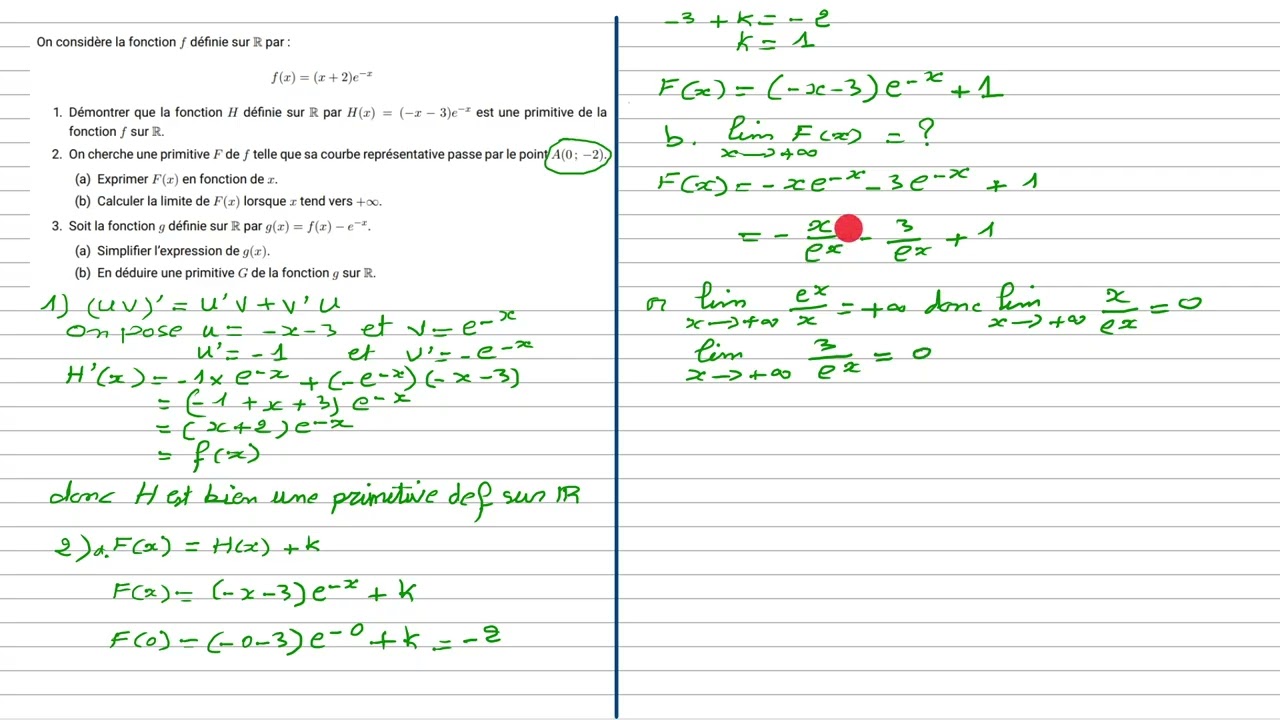 On considère la fonction f définie sur ℝ par :
f(x) = (x + 2)e⁻ˣ
1. Démontrer que la fonction H définie sur ℝ par H(x) = (−x − 3)e⁻ˣ est une primitive de la
fonction f sur ℝ.
2. On cherche une primitive F de f telle que sa courbe représentative passe par le point A(0 ; −2).
(a) Exprimer F(x) en fonction de x.
(b) Calculer la limite de F(x) lorsque x tend vers +∞.
3. Soit la fonction g définie sur ℝ par g(x) = f(x) − e⁻ˣ.
(a) Simplifier l'expression de g(x).
(b) En déduire une primitive G de la fonction g sur ℝ.
1) (uv)' = u'v + v'u
On pose u = -x-3 et v = e⁻ˣ
u' = -1 et v' = -e⁻ˣ
H'(x) = -1 × e⁻ˣ + (-e⁻ˣ)(-x-3)
= (-1 + x + 3) e⁻ˣ
= (x+2) e⁻ˣ
= f(x)
donc H est bien une primitive de f sur ℝ
2) a. F(x) = H(x) + k
F(x) = (-x-3) e⁻ˣ + k
F(0) = (-0-3) e⁻⁰ + k = -2
-3 + k = -2
k = 1
F(x) = (-x-3) e⁻ˣ + 1
b. lim F(x) = ?
x→+∞
F(x) = -xe⁻ˣ - 3e⁻ˣ + 1
= - x/eˣ - 3/eˣ + 1
or lim eˣ/x = +∞ donc lim x/eˣ = 0
x→+∞ x→+∞
lim 3/eˣ = 0
x→+∞